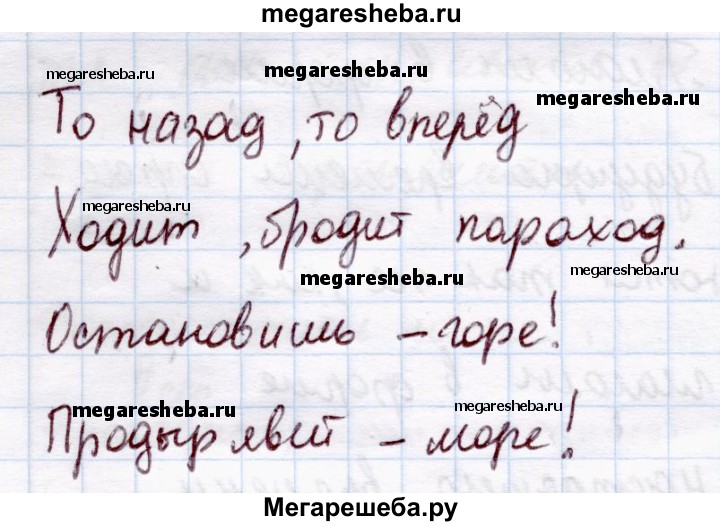 megaresheba.ru
megaresheba.ru
megaresheba.ru
megaresheba.ru
То назад, то вперёд
megaresheba.ru
Ходит, бродит пароход.
megaresheba.ru
megaresheba.ru
Остановишь – горе!
megaresheba.ru
megaresheba.ru
Продырявит – море!
Мегарешеба.ру